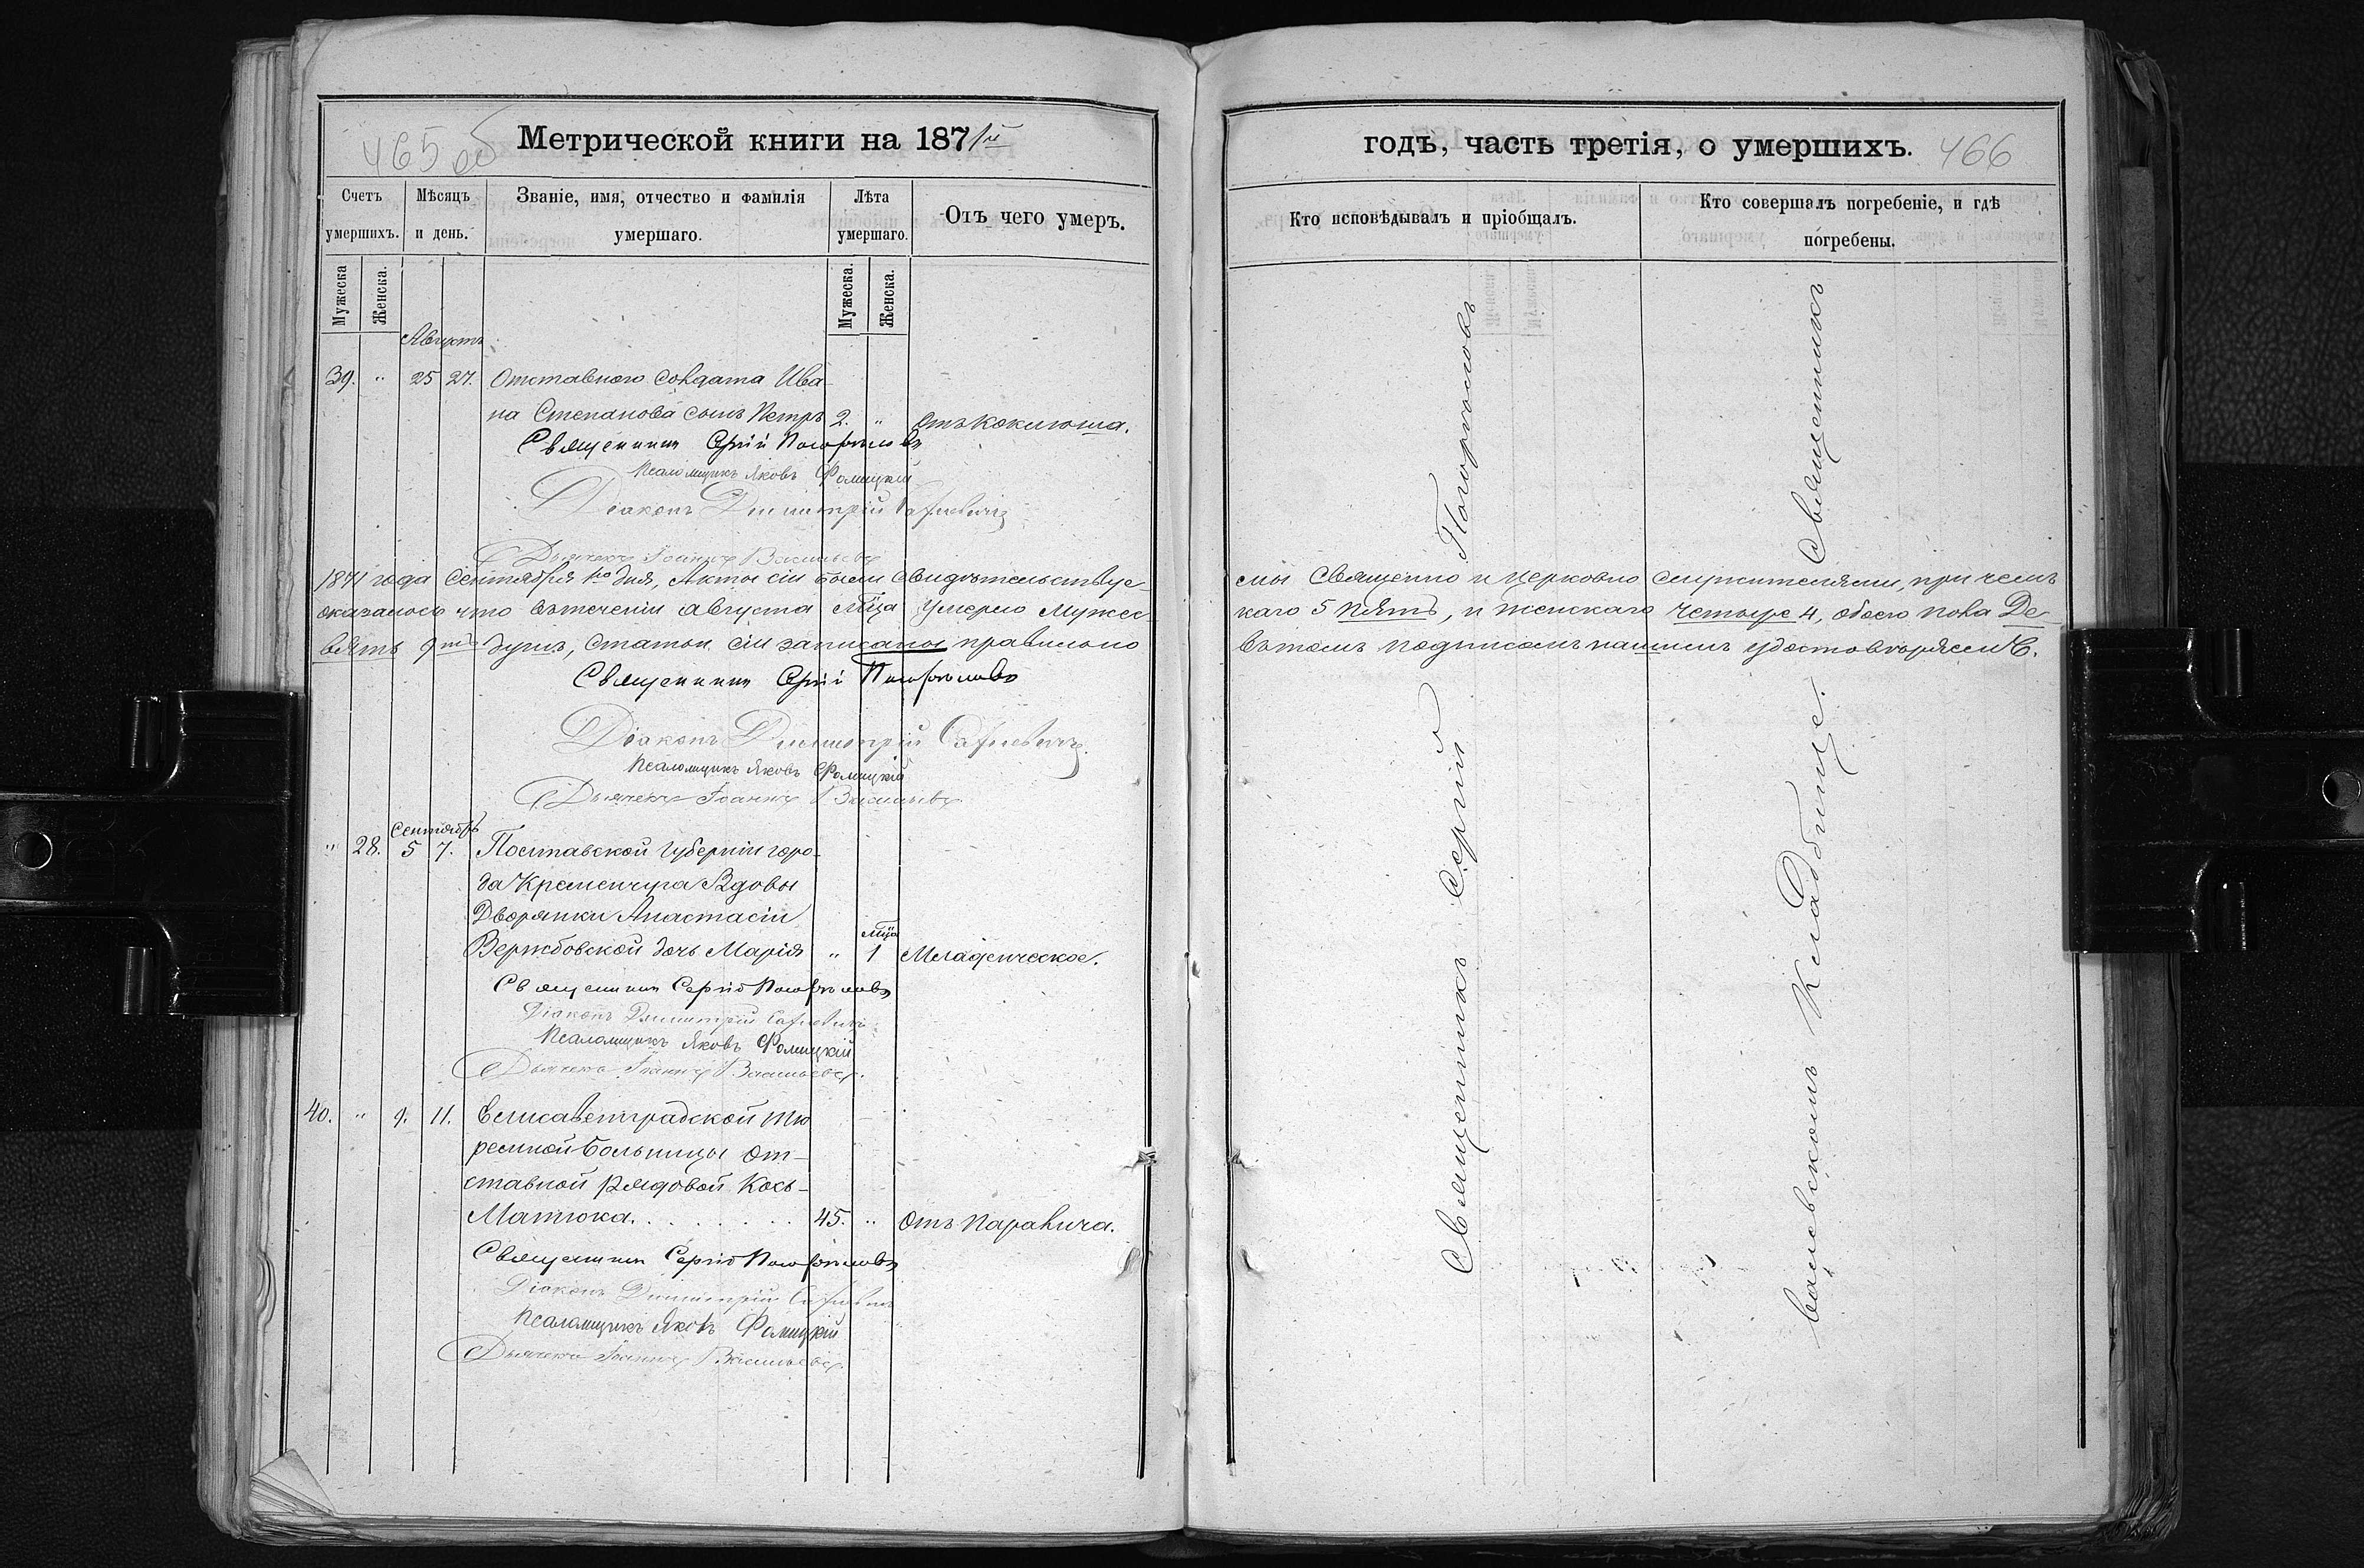 465 об
Метрической книги на 1871й
Счетъ умершихъ.
Мѣсяцъ и день.
Званіе, имя, отчество и фамилія умершаго.
Лѣта умершаго.
Отъ чего умеръ.
Мужеска
Женска.
Мужеска.
Женска.
Августъ
39. " 25 27. Отставного солдата Ива-
на Степанова сынъ Петръ 2. " Отъ коклюша.
Священникъ Сергій
Псаломщикъ Яковъ Фомицкій
Діаконъ Димитрій
Дьячекъ Іоаннъ Васильевъ
1871 года Сентября 1го дня, Акты сіи были свидѣтельствуе-
оказалось что втеченіи августа мца умерло Мужес-
вять 9ть душъ, статьи сіи записаны правильно
Священникъ Сергій
Діаконъ Димитрій
Псаломщикъ Яковъ Фомицкій
Дьячекъ Іоаннъ Васильевъ
Сентябрь
" 28. 5 7. Полтавской губерніи горо-
да Кременчуга Вдовы
Дворянки Анастасіи
мца
Вержбовской дочь Марія " 1 Младенческое.
Священникъ Сергій
Діаконъ Димитрій
Псаломщикъ Яковъ Фомицкій
Дьячекъ Іоаннъ Васильевъ
40. " 9. 11. Елисаветградской тю
ремной больницы от-
ставной рядовой Кось-
Матюка. . . . . . . . 45. " Отъ паралича.
Священникъ Сергій
Діаконъ Димитрій
Псаломщикъ Яковъ Фомицкій
Дьячекъ Іоаннъ Васильевъ
годъ, часть третія, о умершихъ.
466
Кто исповѣдывалъ и пріобщалъ.
Кто совершалъ погребеніе, и гдѣ погребены.
мы Священно и церковно служителями, при чемъ
каго 5 пять, и женскаго четыре 4, обоего пола Де-
вътомъ подписомъ нашимъ удостовѣряемъ.
Священникъ Сергій
Священникъ
кладбище.